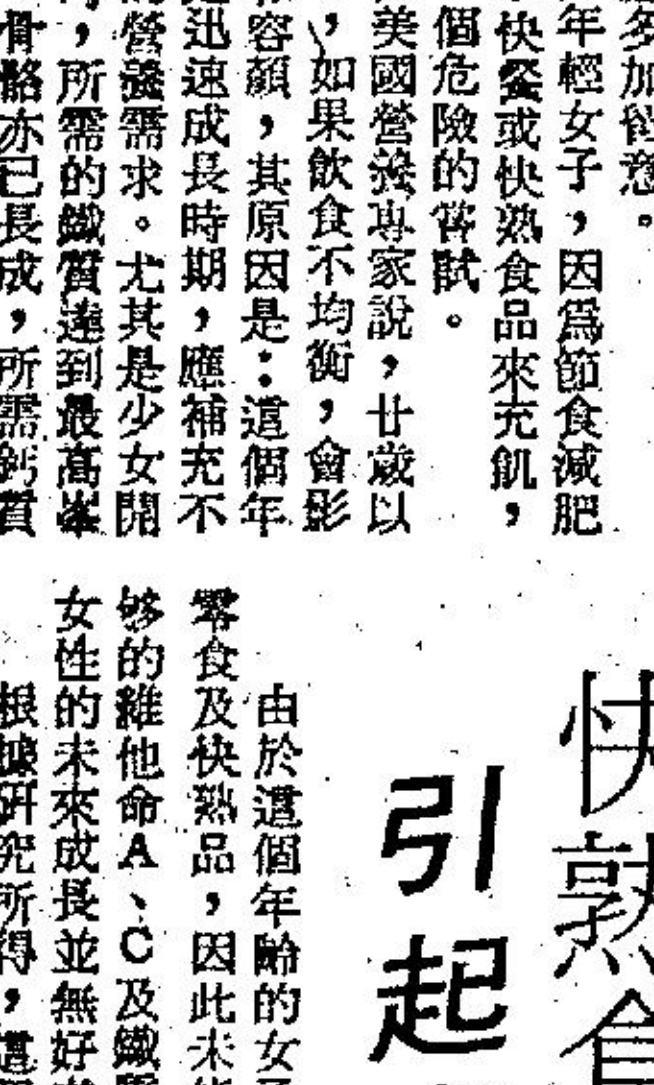 應多加留意。
年輕女子，因爲節食減肥
快餐或快熟食品來充飢，
個危險的嘗試。
美國營養專家說，廿歲以
，如果飲食不均衡，會影
容顏，其原因是：這個年
迅速成長時期，應補充不
營養需求。尤其是少女開
，所需的鐵質達到最高峯
骨骼亦已長成，所需鈣質
快熟食
引起
由於這個年齡的女子
零食及快熟品，因此未能
够的維他命A、C及鐵質
女性的未來成長並無好
根據研究所得，這